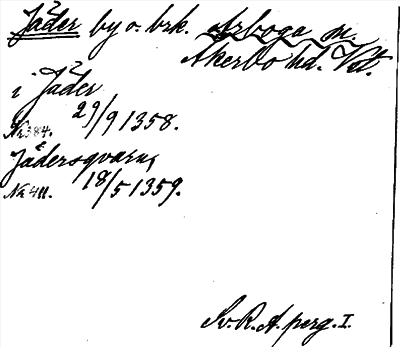 Jäder by o. brk. Arboga sn.
Åkerbo hd. Vstl.
i Jäder
29/9 1358.
No 384.
Jädersqvarn,
18/5 1359.
No 411.
Sv. R. A. perg. I.